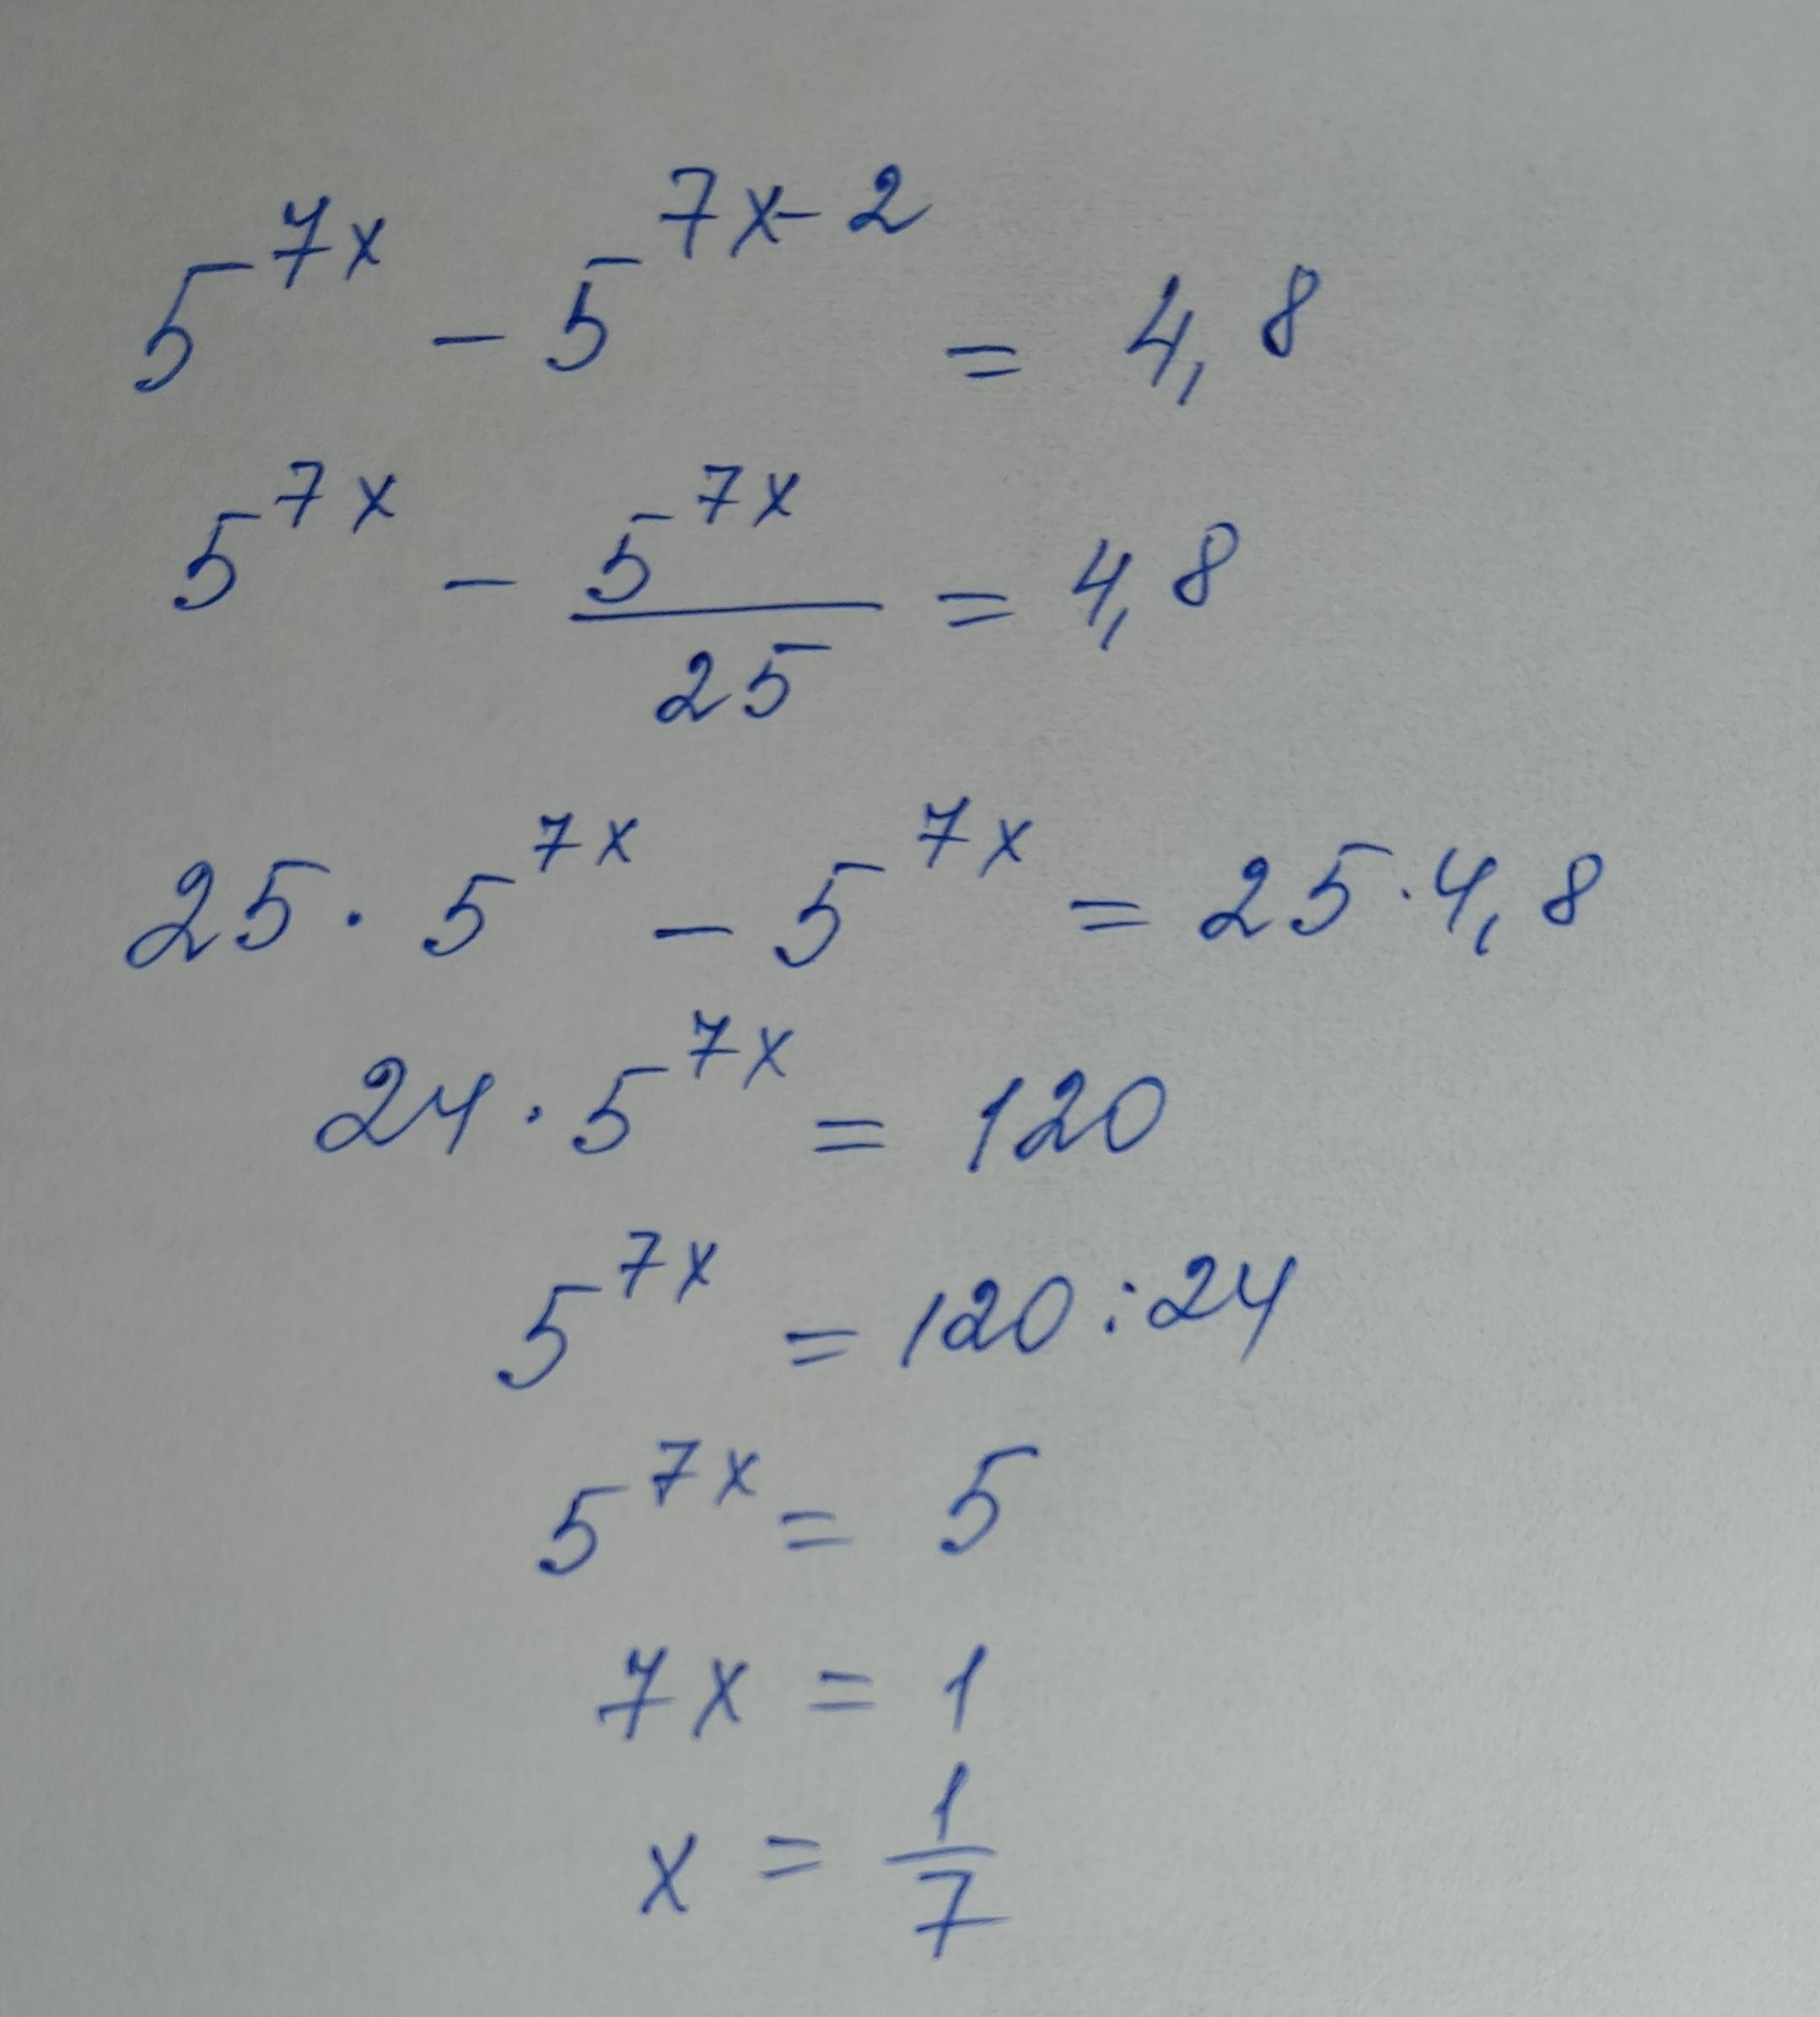 5^{7x} - 5^{7x-2} = 4,8
5^{7x} - \frac{5^{7x}}{25} = 4,8
25 · 5^{7x} - 5^{7x} = 25 · 4,8
24 · 5^{7x} = 120
5^{7x} = 120 : 24
5^{7x} = 5
7x = 1
x = \frac{1}{7}